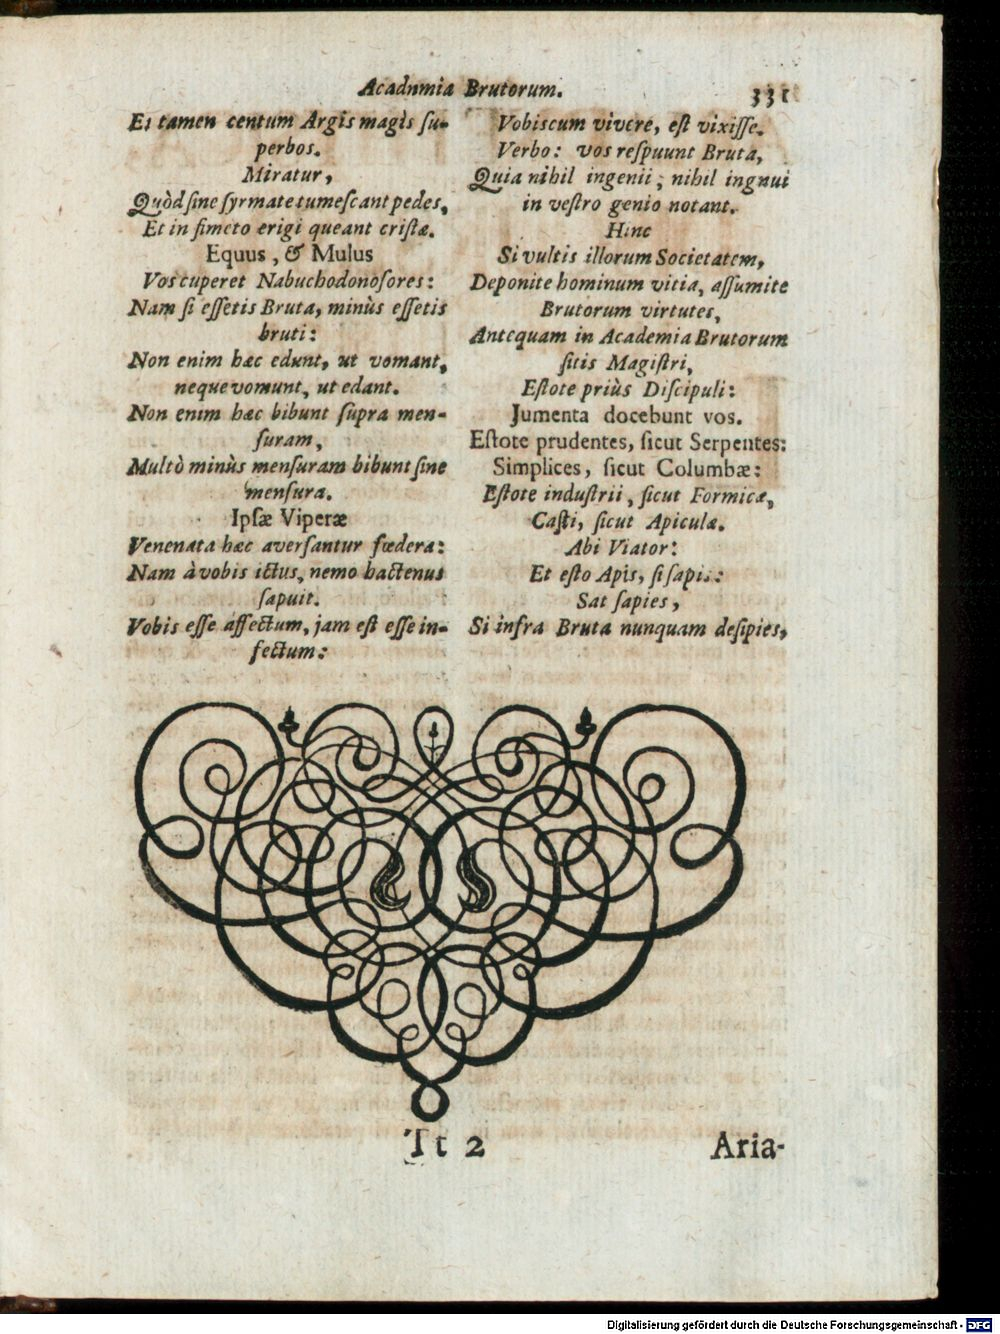 Acadnmia Brutorum.
331
Et tamen centum Argis magìs ſu-
perbos.
Miratur,
Quòd ſine ſyrmate tumeſcant pedes,
Et in fimeto erigi queant criſtæ.
Equus, & Mulus
Vos cuperet Nabuchodonoſores:
Nam ſi eſſetis Bruta, minùs eſſetis
bruti:
Non enim hæc edunt, ut vomant,
neque vomunt, ut edant.
Non enim hæc bibunt ſupra men-
ſuram,
Multò minùs menſuram bibunt ſine
menſura.
Ipſæ Viperæ
Venenata hæc averſantur fœdera:
Nam à vobis ictus, nemo hactenus
ſapuit.
Vobis eſſe affectum, jam eſt eſſe in-
fectum:
Vobiscum vivere, eſt vixiſſe.
Verbo: vos reſpuunt Bruta,
Quia nihil ingenii; nihil ingnui
in veſtro genio notant.
Hinc
Si vultis illorum Societatem,
Deponite hominum vitia, aſſumite
Brutorum virtutes,
Antequam in Academia Brutorum
ſitis Magiſtri,
Eſtote priùs Diſcipuli:
Jumenta docebunt vos.
Eſtote prudentes, ſicut Serpentes:
Simplices, ſicut Columbæ:
Eſtote induſtrii, ſicut Formicæ,
Caſti, ſicut Apiculæ.
Abi Viator:
Et eſto Apis, ſi ſapis:
Sat ſapies,
Si infra Bruta nunquam deſipies,
Tt 2
Aria-
Digitalisierung gefördert durch die Deutsche Forschungsgemeinschaft - DFG